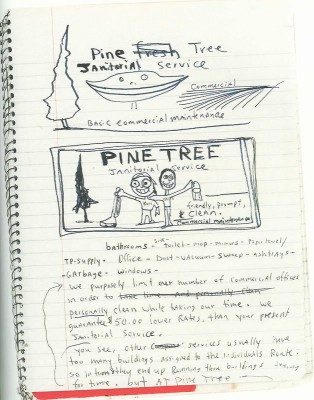 Pine Fresh Tree
Janitorial Service
Commercial
Basic commercial maintenance
PINE TREE
Janitorial Service
friendly, prompt,
& Clean.
Commercial maintenance
bathrooms - sink - toilet - mop - mirrors - Paper towel/
TP-supply. Office - Dust - Vacuum - Sweep - Ashtrays -
- Garbage - windows -
We purposely limit our number of commercial offices
in order to take time and personally clean
personally clean while taking our time. we
guarantee $50.00 lower Rates, than your present
Janitorial Service.
You see, other services usually have
too many buildings assigned to the individuals Route.
So in turn they end up Running thru buildings
for time. but AT Pine Tree -